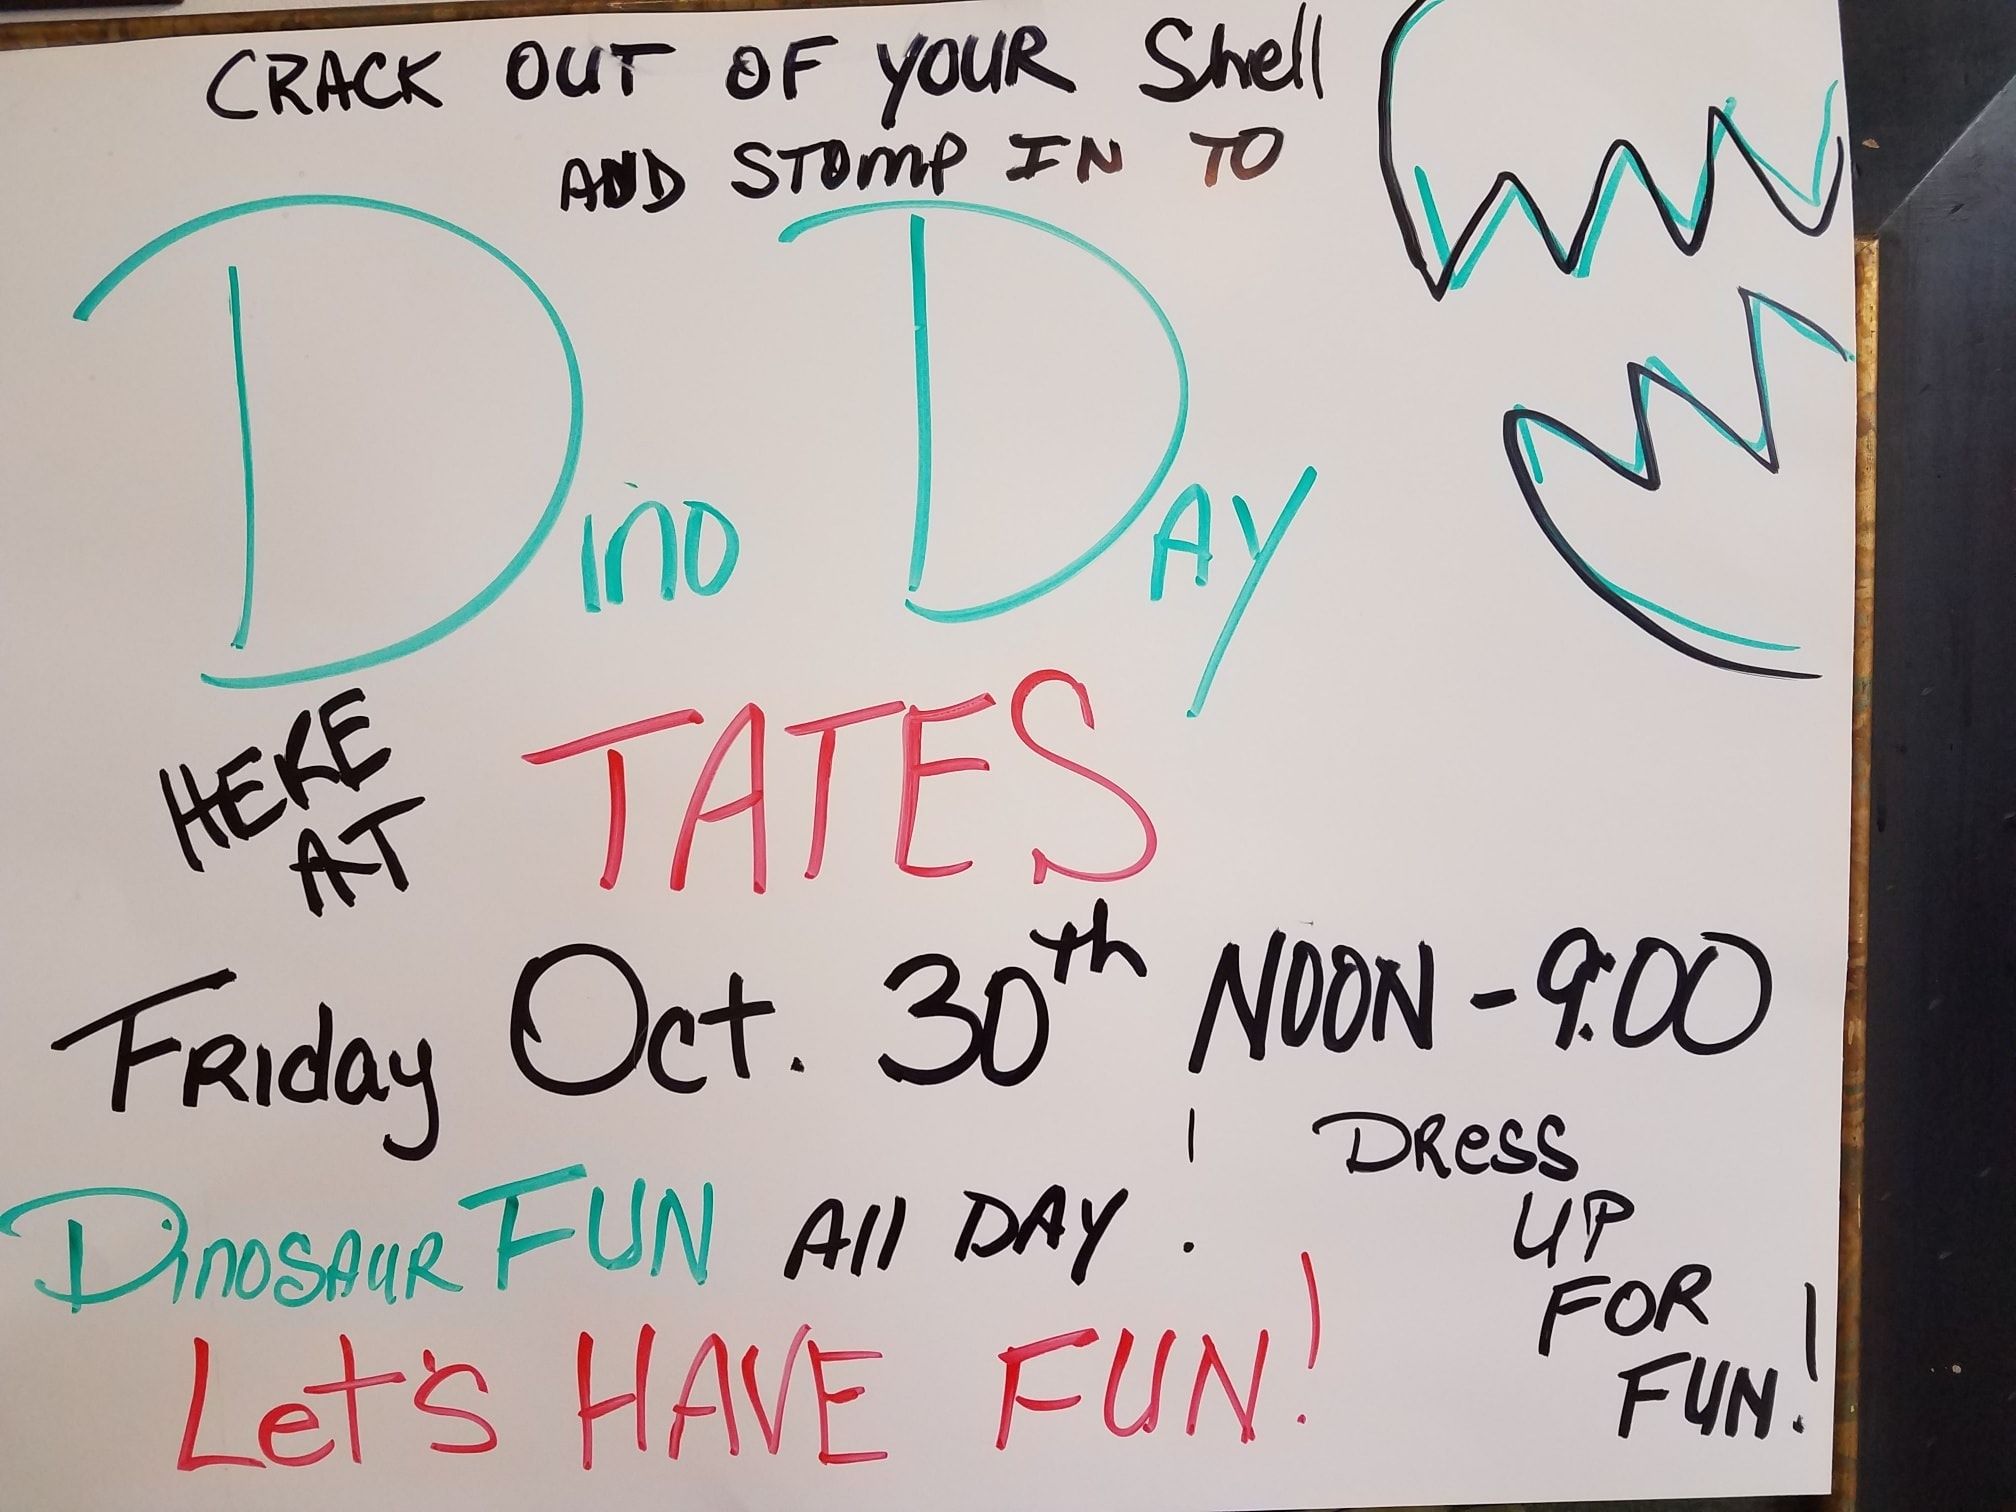 CRACK OUT OF YOUR Shell
AND STOMP IN TO
Dino DAY
HERE
AT
TATES
FRIday Oct. 30th NOON - 9:00
DINOSAUR FUN All DAY!
DRESS
UP
FOR
FUN!
Let's HAVE FUN!